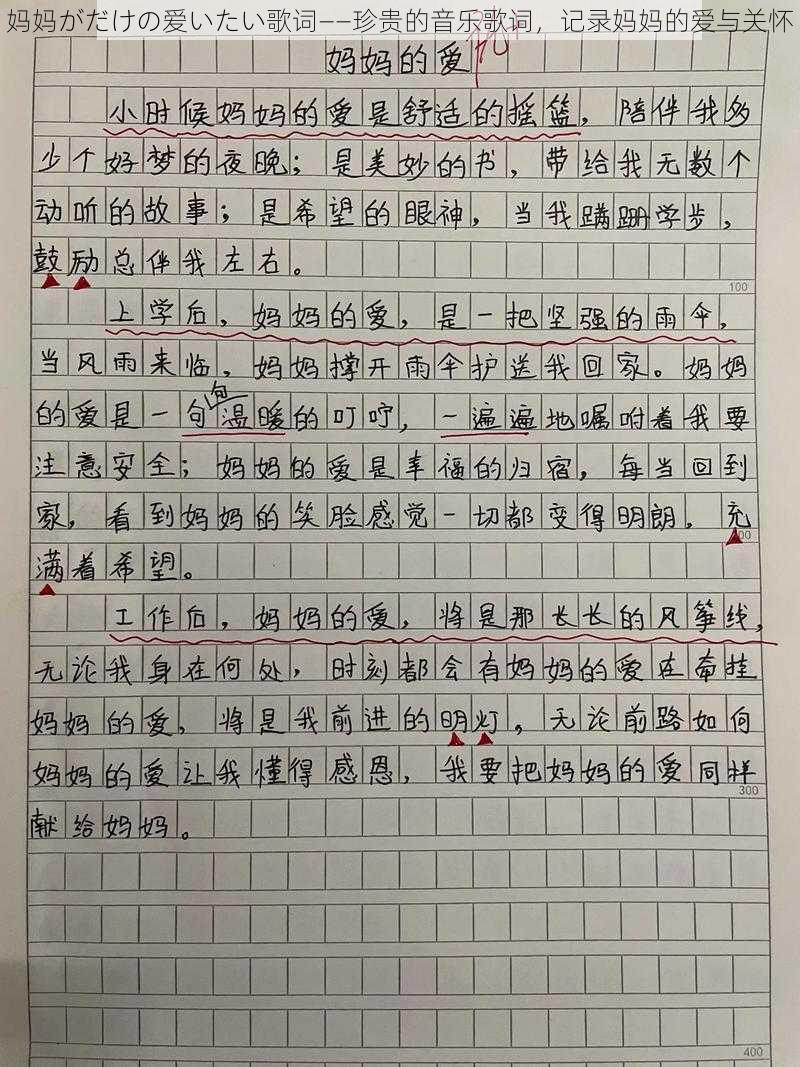 妈妈がだけの爱いたい歌词——珍贵的音乐歌词，记录妈妈的爱与关怀
妈妈的爱
小时候妈妈的愛是舒适的摇篮，陪伴我多
少个好梦的夜晚；是美妙的书，带给我无数个
动听的故事；是希望的眼神，当我蹒跚学步，
鼓励总伴我左右。
100
上学后，妈妈的爱，是一把坚强的雨伞，
当风雨来临，妈妈撑开雨伞护送我回家。妈妈
的爱是一句温暖的叮咛，一遍遍地嘱咐着我要
句
注意安全；妈妈的爱是幸福的归宿，每当回到
家，看到妈妈的笑脸感觉一切都变得明朗，充
满着希望。
工作后，妈妈的爱，将是那长长的风筝线，
无论我身在何处，时刻都会有妈妈的爱在牵挂
妈妈的爱，将是我前进的明灯，无论前路如何
妈妈的爱让我懂得感恩，我要把妈妈的爱同样
300
献给妈妈。
400